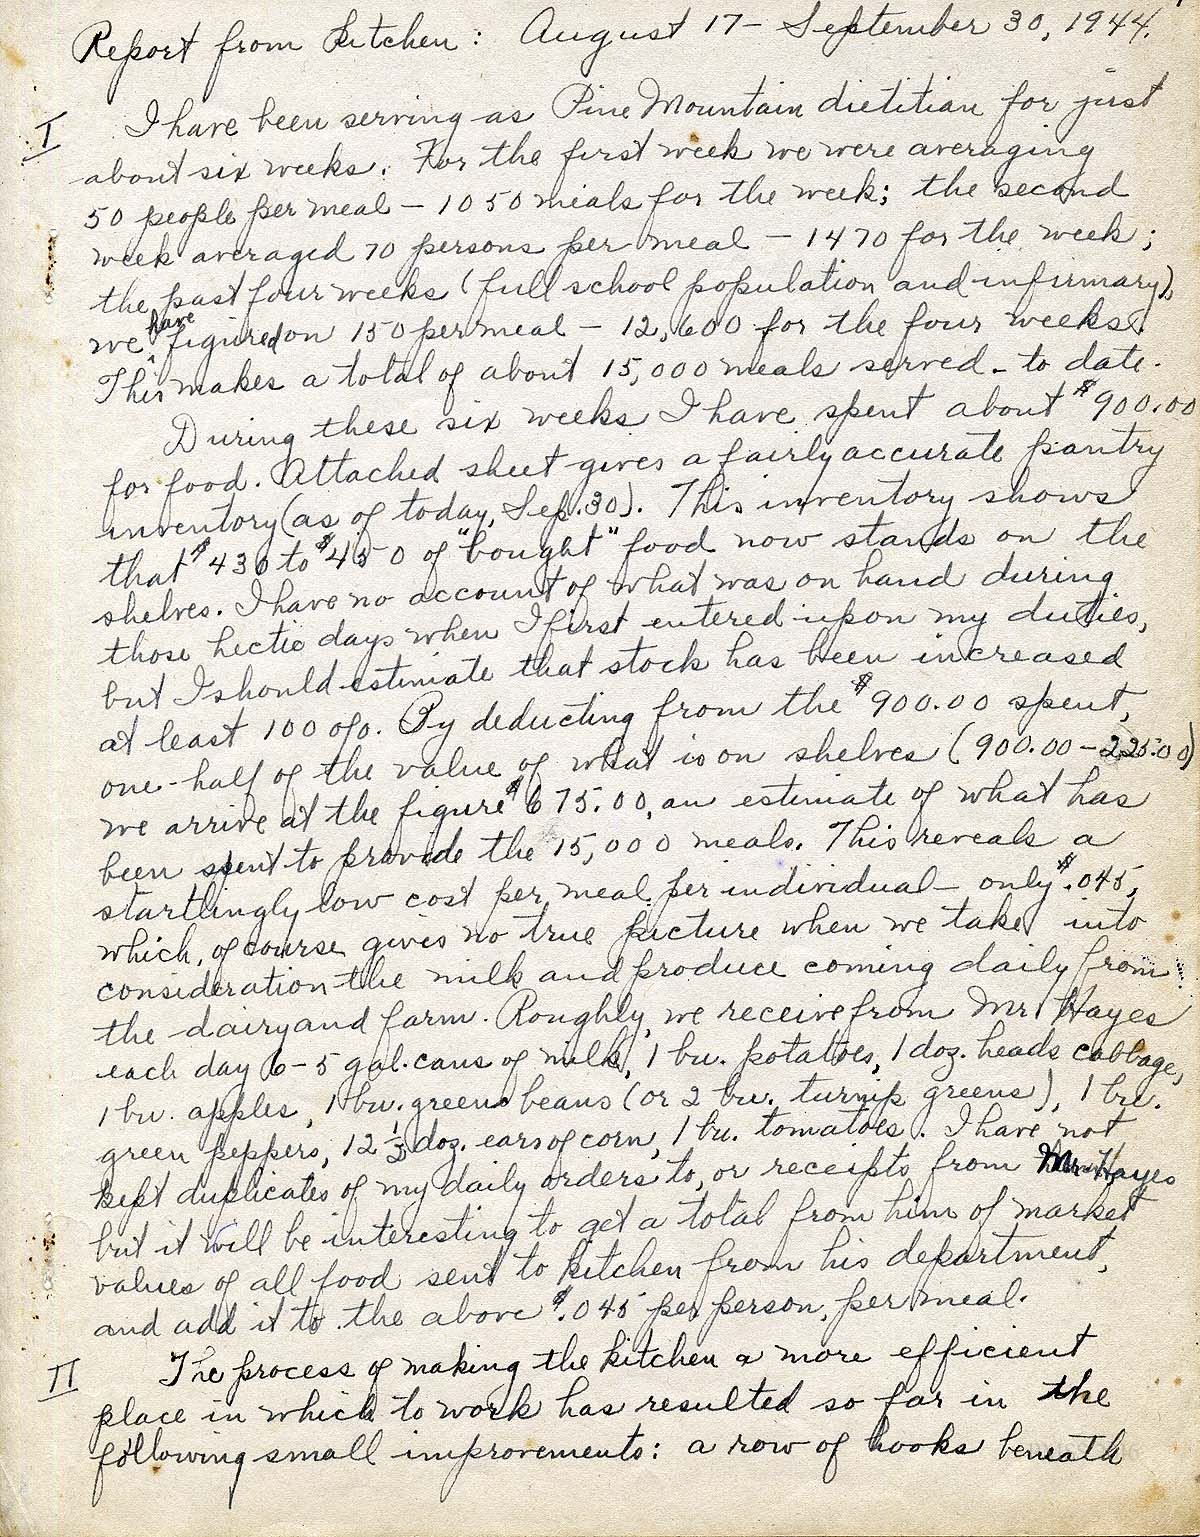 Report from Kitchen: August 17 - September 30, 1944.
I I have been serving as Pine Mountain dietitian for just
about six weeks. For the first week we were averaging
50 people per meal - 1050 meals for the week; the second
week averaged 70 persons per meal - 1470 for the week;
the past four weeks (full school population and infirmary),
we have figured on 150 per meal - 12,600 for the four weeks.
This makes a total of about 15,000 meals served - to date.
During these six weeks I have spent about $900.00
for food. Attached sheet gives a fairly accurate pantry
inventory (as of today, Sep. 30). This inventory shows
that $430 to $450 of "bought" food now stands on the
shelves. I have no account of what was on hand during
those hectic days when I first entered upon my duties,
but I should estimate that stock has been increased
at least 100 o/o. By deducting from the $900.00 spent,
one-half of the value of what is on shelves (900.00 - 225.00)
we arrive at the figure $675.00, an estimate of what has
been spent to provide the 15,000 meals. This reveals a
startlingly low cost per meal per individual - only $.045,
which, of course gives no true picture when we take into
consideration the milk and produce coming daily from
the dairy and farm. Roughly, we receive from Mr. Hayes
each day 6 - 5 gal. cans of milk, 1 bu. potatoes, 1 doz. heads cabbage,
1 bu. apples, 1 bu. green beans (or 2 bu. turnip greens), 1 bu.
green peppers, 12 1/2 doz. ears of corn, 1 bu. tomatoes. I have not
kept duplicates of my daily orders to, or receipts from Mr. Hayes
but it will be interesting to get a total from him of market
values of all food sent to kitchen from his department,
and add it to the above $.045 per person, per meal.
II The process of making the kitchen a more efficient
place in which to work has resulted so far in the
following small improvements: a row of hooks beneath